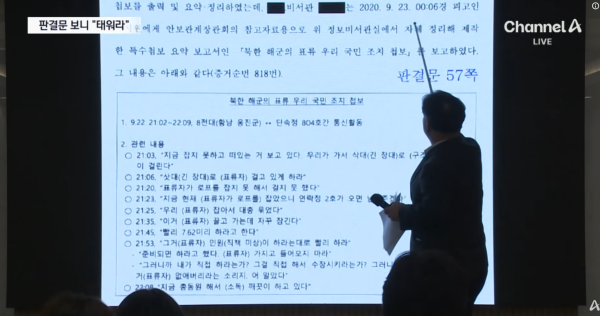 판결문 보니 "태워라"
Channel A
LIVE
첩보들을 출력 및 요약·정리하였는데,
비서관
는 2020. 9. 23. 00:06경 피고인
에게 안보관계장관회의 참고자료용으로 위 정보비서관실에서 자체 정리해 제작
한 특수첩보 요약 보고서인 「북한 해군의 표류 우리 국민 조치 첩보」를 보고하였다.
그 내용은 아래와 같다(증거순번 818번).
판결문 57쪽
북한 해군의 표류 우리 국민 조치 첩보
1. 9.22 21:02~22:09, 8전대(황남 옹진군) ↔ 단속정 804호간 통신활동
2. 관련 내용
○ 21:03, "지금 잡지 못하고 떠있는 거 보고 있다. 우리가 가서 삭대(긴 장대)로 (구
이 걸린다"
○ 21:06, "삿대(긴 장대)로 (표류자) 걸고 있게 하라"
○ 21:20, "표류자가 로프를 잡지 못 해서 걸지 못 했다"
○ 21:23, "지금 현재 (표류자가 로프를) 잡았으니 연락정 2호가 오면
○ 21:25, "우리 (표류자) 잡아서 대충 묶었다"
○ 21:35, "이거 (표류자) 끌고 가는데 자꾸 잠긴다"
○ 21:45, "빨리 7.62미리 하라고 한다"
○ 21:53, "그거(표류자) 인원(직책 이상)이 하라는대로 빨리 하라"
- "준비되면 하라고 했다. (표류자) 가지고 들어오지 마라"
- "그러니까 내가 직접 하라는가? 그걸 직접 해서 수장시키라는가? 그러니
거(표류자) 없애버리라는 소리지. 어 알았다"
"지금 총동원 해서 (소독) 깨끗이 하고 있다"